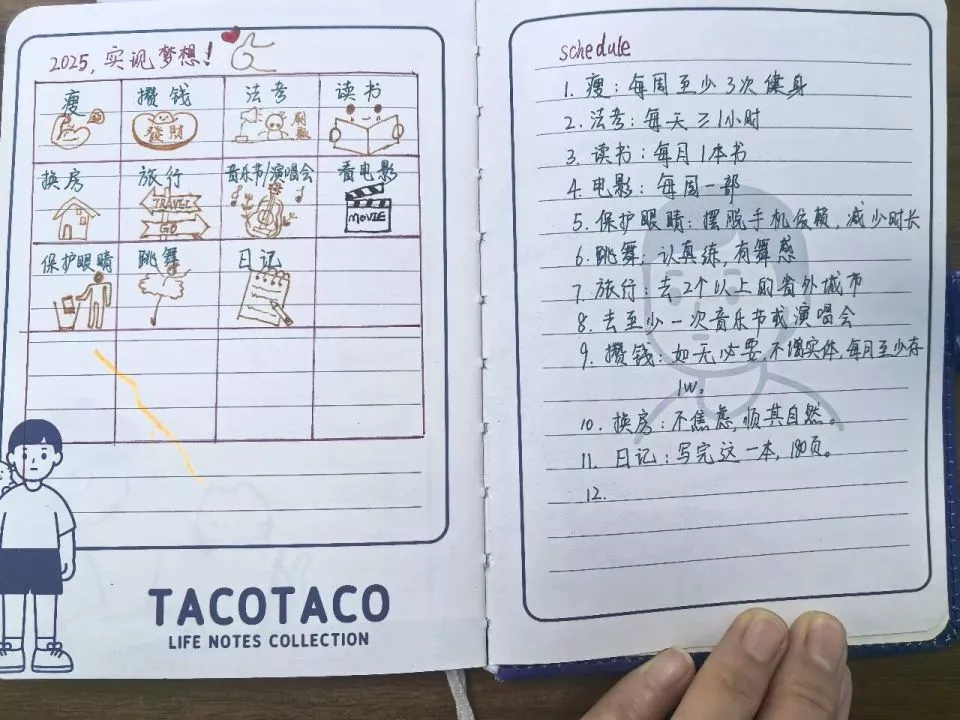 2025, 实现梦想!
瘦 攒钱 法考 读书
發財 刷题
换房 旅行 音乐节/演唱会 看电影
TRAVEL
GO
MOVIE
保护眼睛 跳舞 日记
TACOTACO
LIFE NOTES COLLECTION
schedule
1. 瘦:每周至少3次健身
2. 法考:每天≥1小时
3. 读书:每月1本书
4. 电影:每周一部
5. 保护眼睛:摆脱手机依赖,减少时长
6. 跳舞:认真练,有舞感
7. 旅行:去2个以上的省外城市
8. 去至少一次音乐节或演唱会
9. 攒钱:如无必要,不增实体,每月至少存
1w。
10. 换房:不焦虑,顺其自然。
11. 日记:写完这一本,180页。
12.